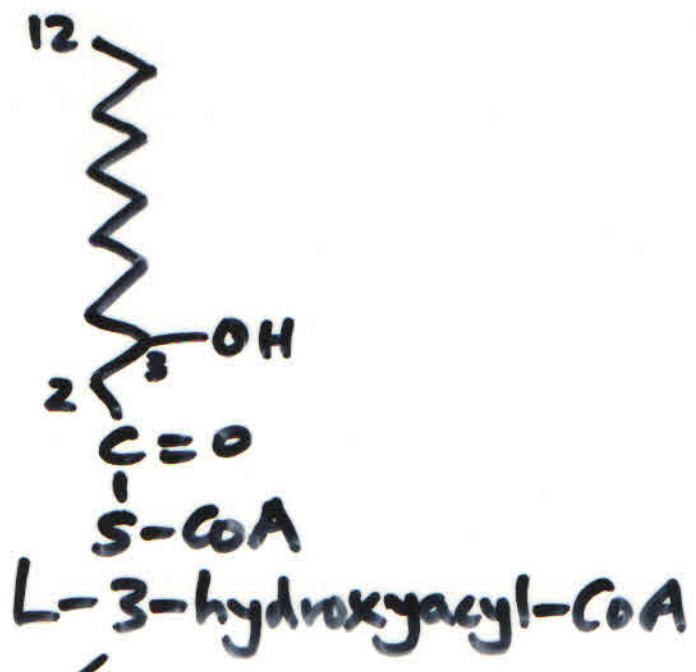 12
OH
3
2
C=O
S-CoA
L-3-hydroxyacyl-CoA